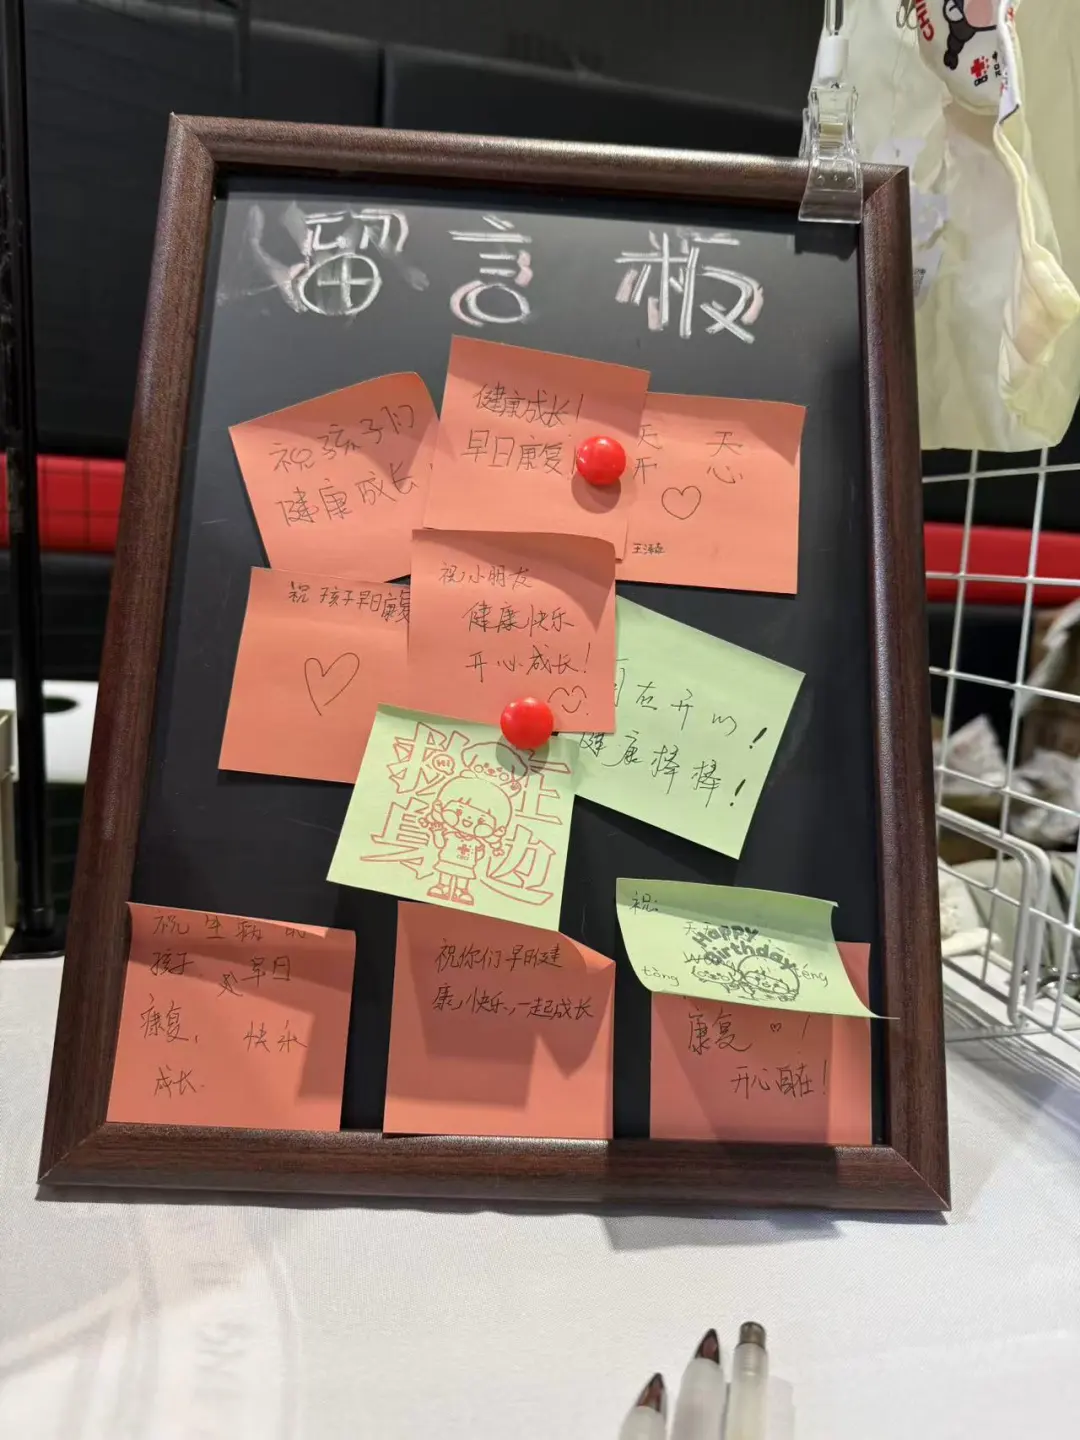 留言板
祝孩子们
健康成长!
健康成长!
早日康复!
天天
开心
祝孩子早日康复
祝小朋友
健康快乐
开心成长!
自在开心!
健康棒棒!
救在
身边
祝生病的
孩子早日
康复,快乐
成长.
祝你们早日健
康,快乐,一起成长
祝:
天
Happy
Birthday
tòng
康复
开心自在!